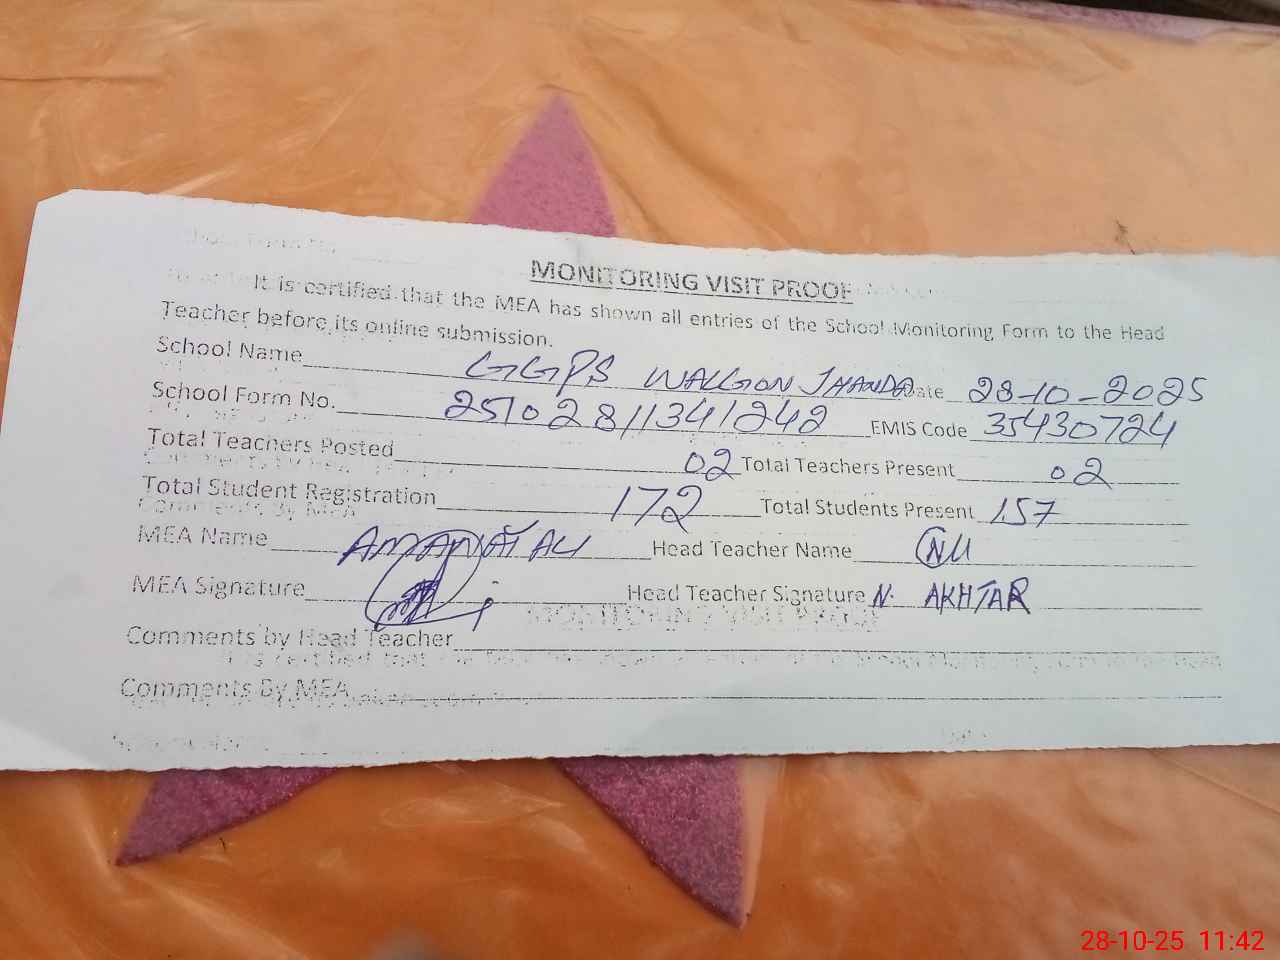 MONITORING VISIT PROOF
It is certified that the MEA has shown all entries of the School Monitoring Form to the Head
Teacher before its online submission.
School Name GGPS WALGON JHANDA Date 28-10-2025
School Form No. 25102811341242 EMIS Code 35430724
Total Teachers Posted 02 Total Teachers Present 02
Total Student Registration 172 Total Students Present 157
MEA Name AMANAT ALI Head Teacher Name
MEA Signature Head Teacher Signature N. AKHTAR
Comments by Head Teacher
Comments By MEA
28-10-25 11:42